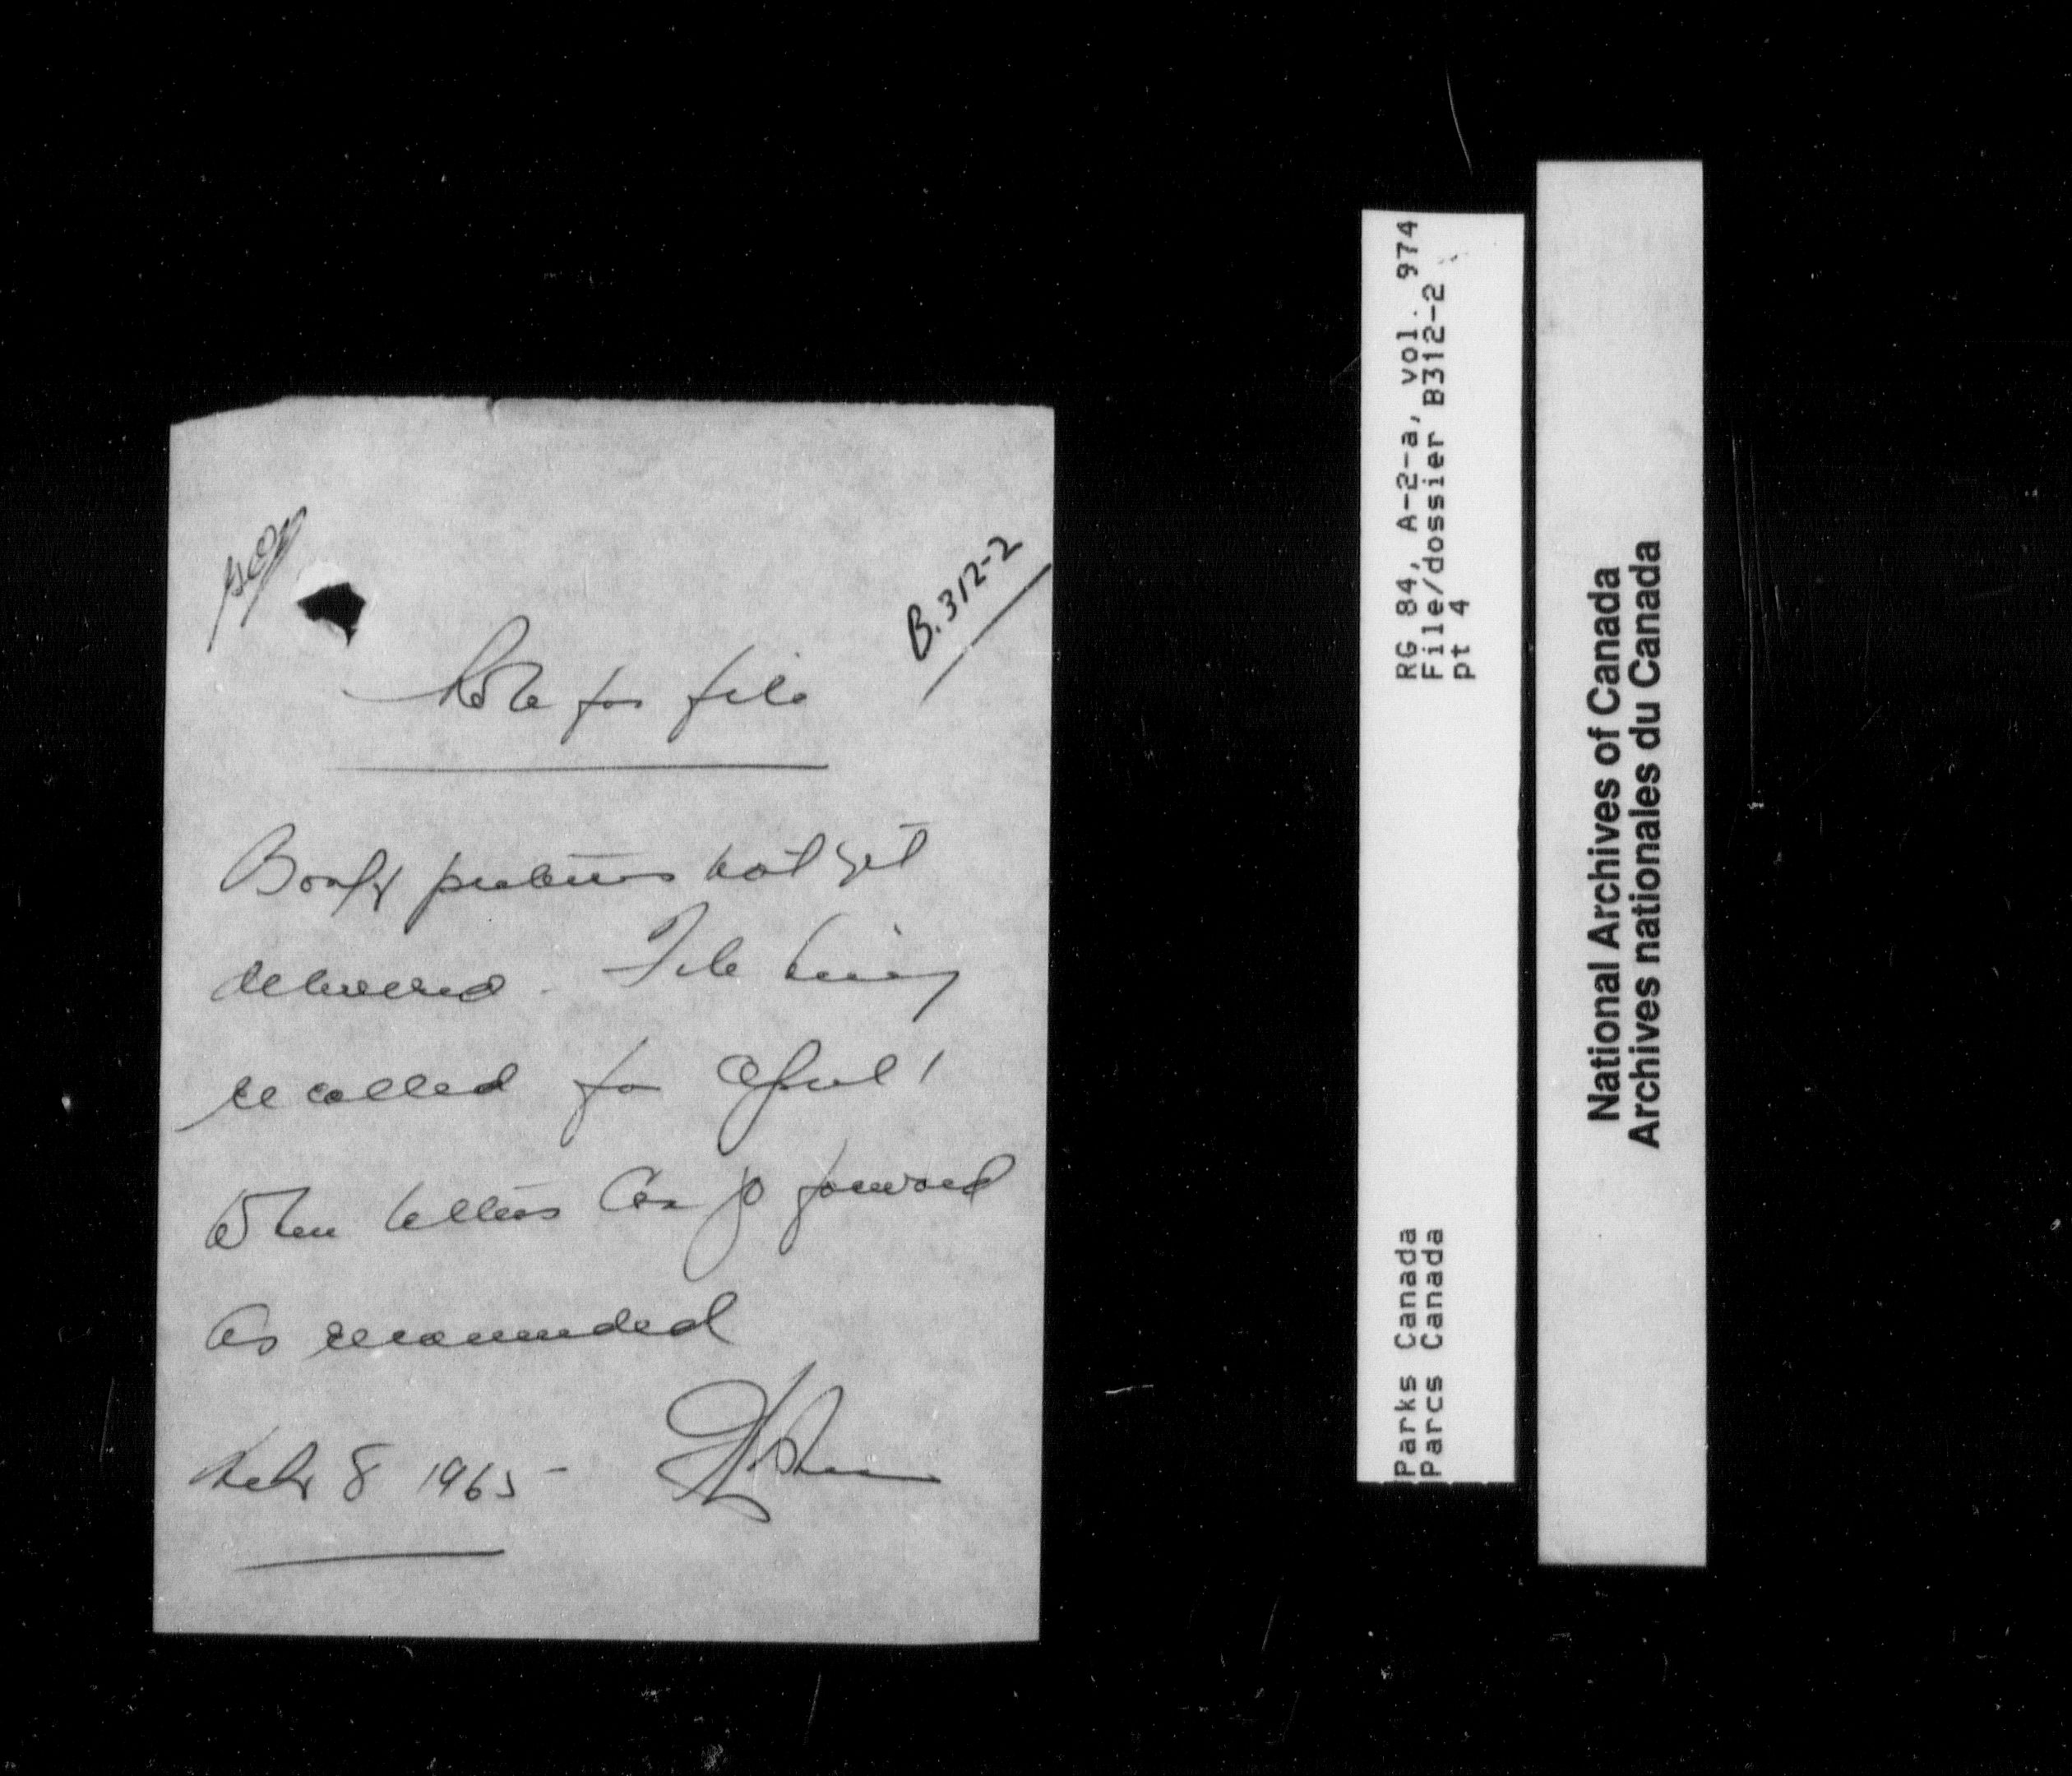 B.312-2
Note for file
Banff pictures not yet
delivered. File being
recalled for April 1
When letters can go forward
as recommended
8 1965
RG 84, A-2-a, vol. 974
File/dossier B312-2
pt 4
Parks Canada
Parcs Canada
National Archives of Canada
Archives nationales du Canada